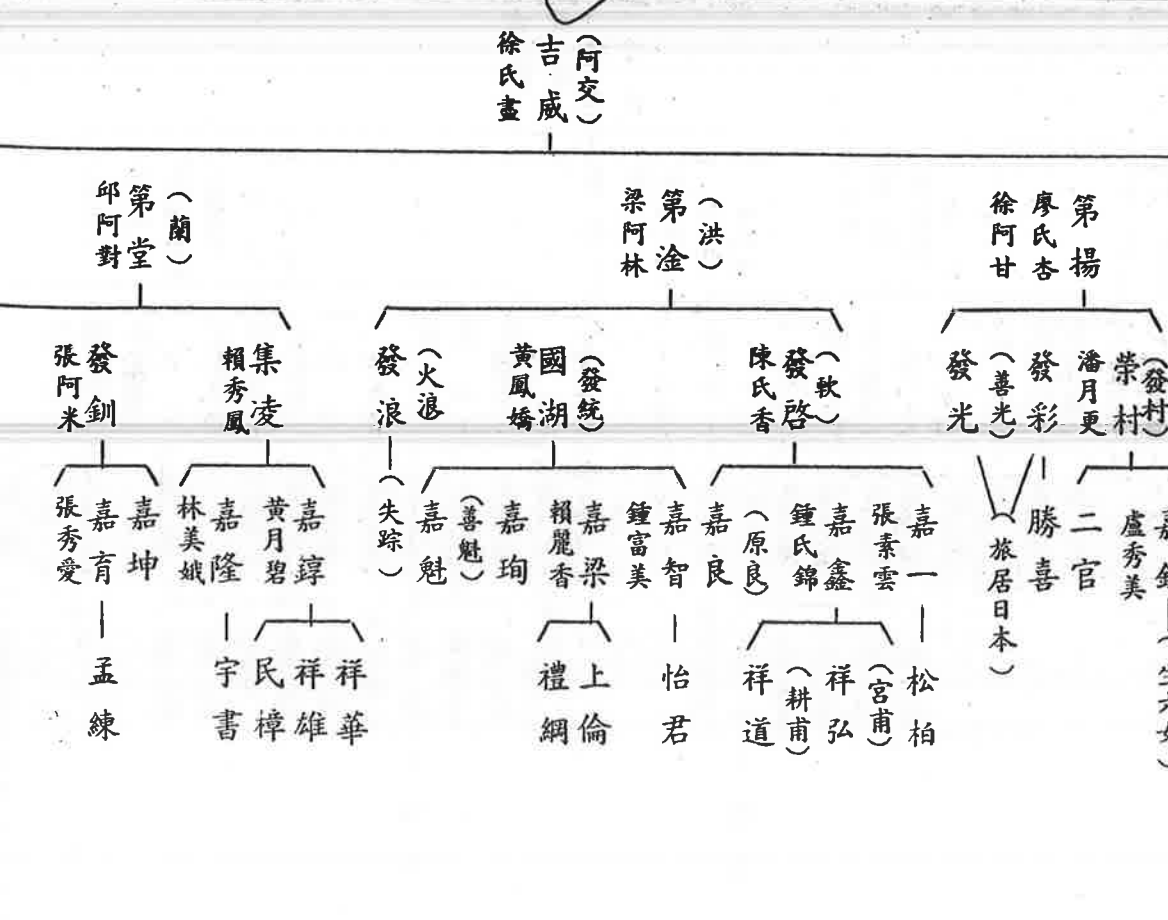 （阿交）
吉威
徐氏盡
第揚
廖氏杏
徐阿甘
（洪）
第淦
梁阿林
（蘭）
第堂
邱阿對
（發村）
榮村
潘月更
發彩
（善光）
發光
（軟）
發啓
陳氏香
（發統）
國湖
黃鳳嬌
（火浪）
發浪
集凌
賴秀鳳
發釧
張阿米
盧秀美
二官
勝喜
（旅居日本）
嘉一
張素雲
嘉鑫
鍾氏錦
（原良）
嘉良
嘉智
鍾富美
嘉梁
賴麗香
嘉珣
（善魁）
嘉魁
（失踪）
嘉錞
黃月碧
嘉隆
林美娥
嘉坤
嘉育
張秀愛
松柏
（宮甫）
祥弘
（耕甫）
祥道
怡君
上倫
禮綱
祥華
祥雄
民樟
宇書
孟練